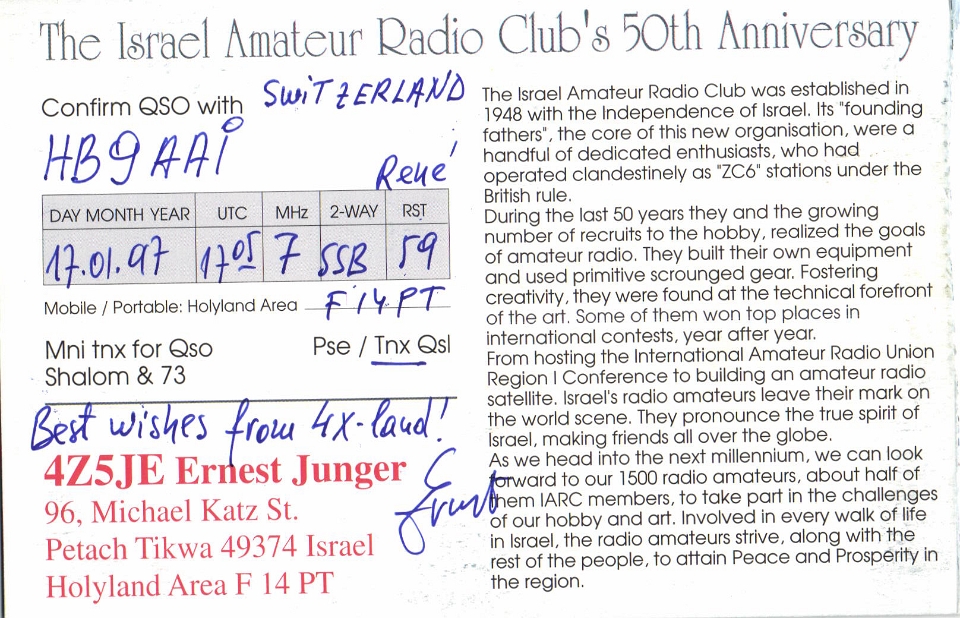 The Israel Amateur Radio Club's 50th Anniversary
Confirm QSO with SWITZERLAND
HB9AAI
René
DAY MONTH YEAR UTC MHz 2-WAY RST
17.01.97 1705 7 SSB 59
Mobile / Portable: Holyland Area F 14 PT
Mni tnx for Qso Pse / Tnx Qsl
Shalom & 73
Best wishes from 4X-land!
Ernest
4Z5JE Ernest Junger
96, Michael Katz St.
Petach Tikwa 49374 Israel
Holyland Area F 14 PT
The Israel Amateur Radio Club was established in
1948 with the Independence of Israel. Its "founding
fathers", the core of this new organisation, were a
handful of dedicated enthusiasts, who had
operated clandestinely as "ZC6" stations under the
British rule.
During the last 50 years they and the growing
number of recruits to the hobby, realized the goals
of amateur radio. They built their own equipment
and used primitive scrounged gear. Fostering
creativity, they were found at the technical forefront
of the art. Some of them won top places in
international contests, year after year.
From hosting the International Amateur Radio Union
Region I Conference to building an amateur radio
satellite. Israel's radio amateurs leave their mark on
the world scene. They pronounce the true spirit of
Israel, making friends all over the globe.
As we head into the next millennium, we can look
forward to our 1500 radio amateurs, about half of
them IARC members, to take part in the challenges
of our hobby and art. Involved in every walk of life
in Israel, the radio amateurs strive, along with the
rest of the people, to attain Peace and Prosperity in
the region.